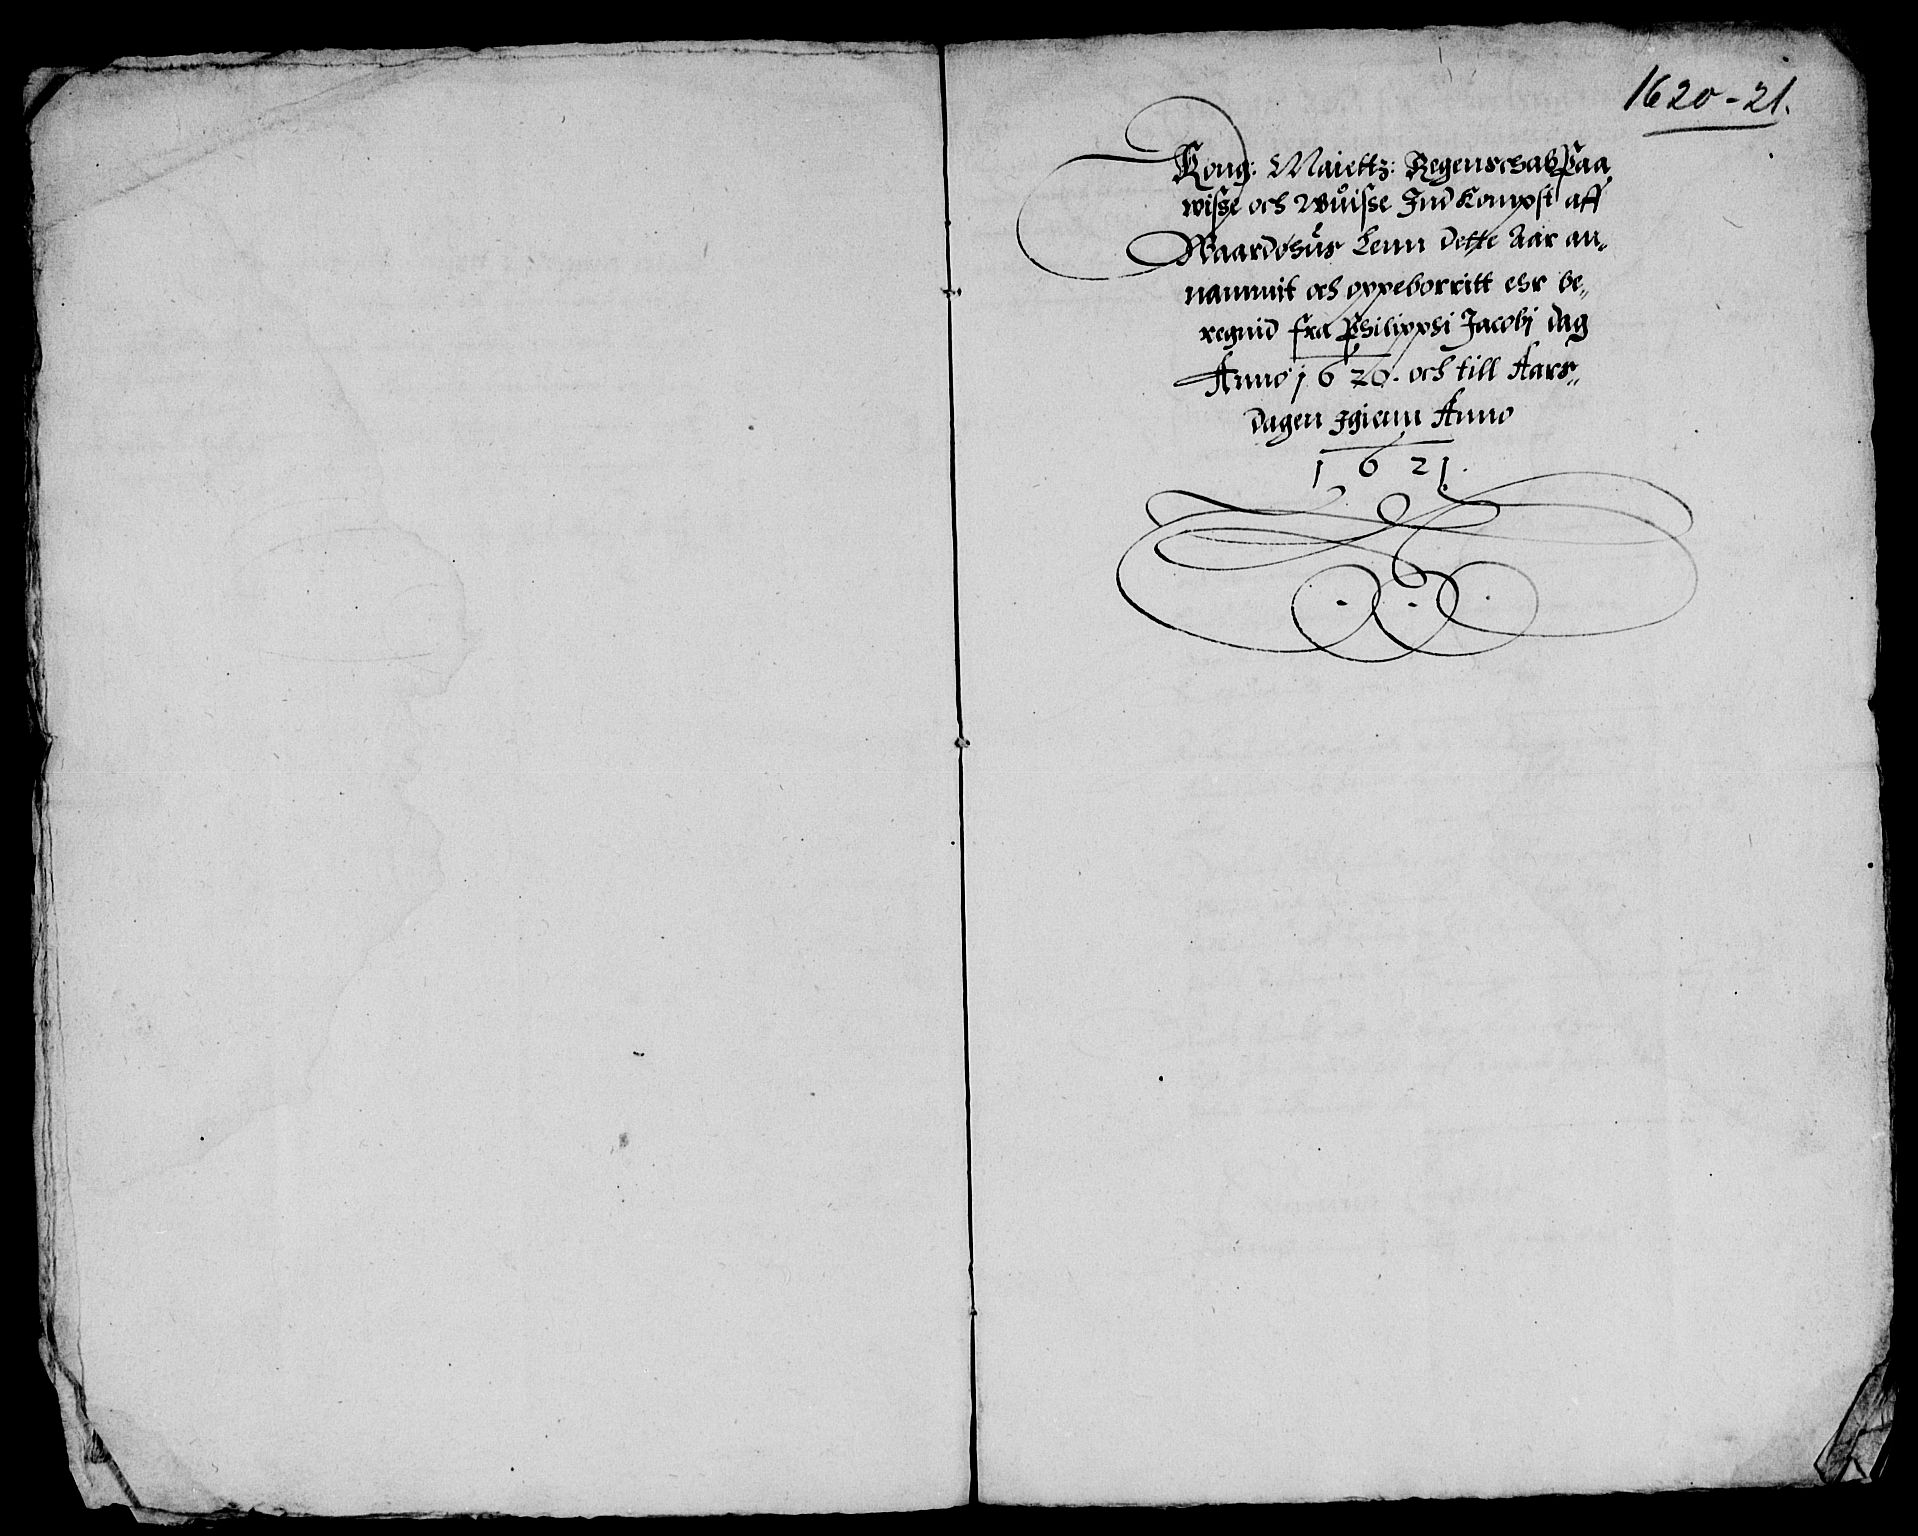 1620-21.
Kong: Maiettz: Regenschab Paa
wisse och Wůisse Indkompst aff
Waardøhůs Lenn dette Aar an„
nammit och oppeborritt ehr be„
regnid fra Philippi Jacobj dag
Anno 1620. och till Aars„
dagen Igienn Anno
1621.